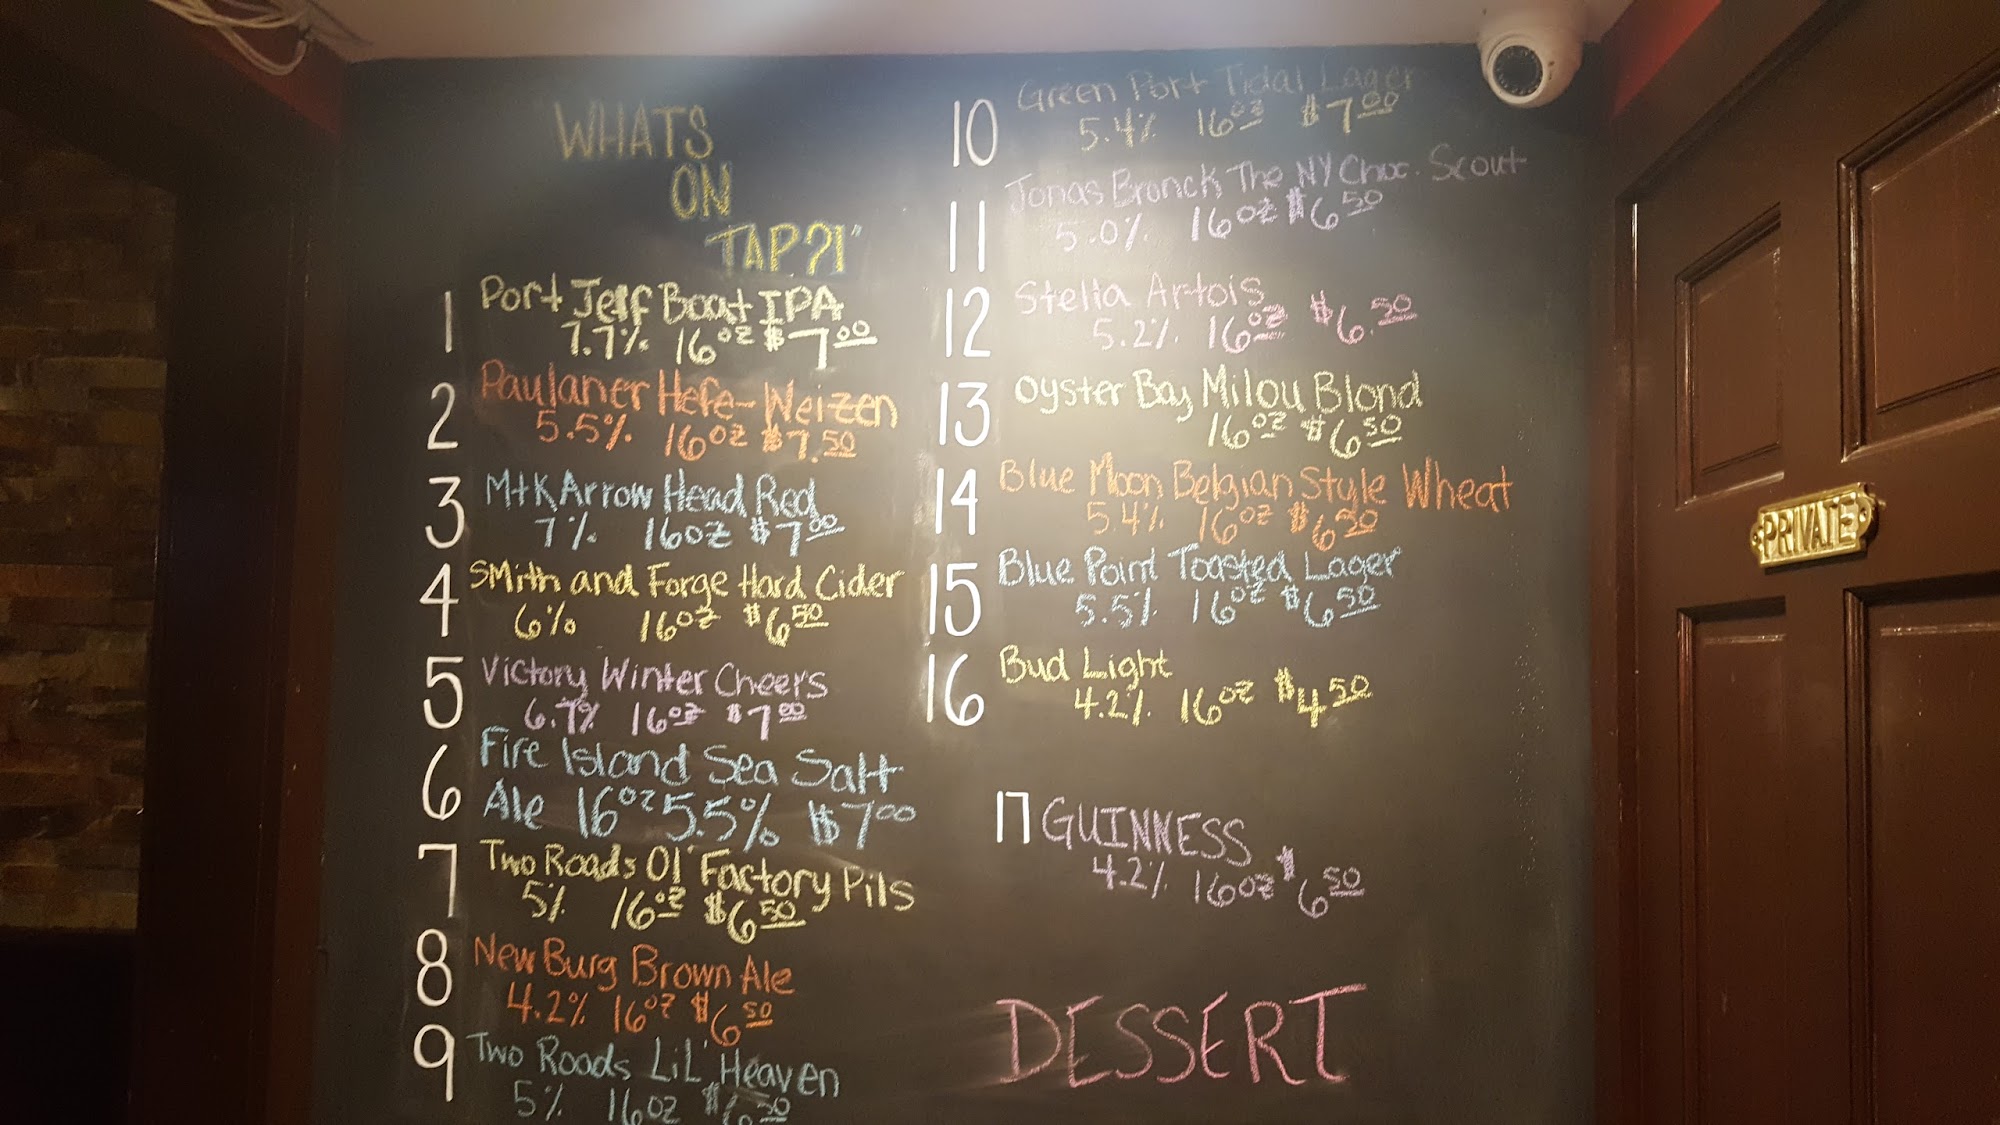 WHATS
ON
TAP?!"
1 Port Jeff Boat IPA
7.7% 16oz $7.00
2 Paulaner Hefe-Weizen
5.5% 16oz $7.50
3 MtK Arrow Head Red
7% 16oz $7.00
4 Smith and Forge Hard Cider
6% 16oz $6.50
5 Victory Winter Cheers
6.7% 16oz $7.00
6 Fire Island Sea Salt
Ale 16oz 5.5% $7.00
7 Two Roads Ol' Factory Pils
5% 16oz $6.50
8 New Burg Brown Ale
4.2% 16oz $6.50
9 Two Roads LiL' Heaven
5% 16oz $6.50
10 Green Port Tidal Lager
5.4% 16oz $7.00
11 Jonas Bronck The NY Choc. Scout
5.0% 16oz $6.50
12 Stella Artois
5.2% 16oz $6.50
13 Oyster Bay Milou Blond
16oz $6.50
14 Blue Moon Belgian Style Wheat
5.4% 16oz $6.50
15 Blue Point Toasted Lager
5.5% 16oz $6.50
16 Bud Light
4.2% 16oz $4.50
17 GUINNESS
4.2% 16oz $6.50
DESSERT
PRIVATE